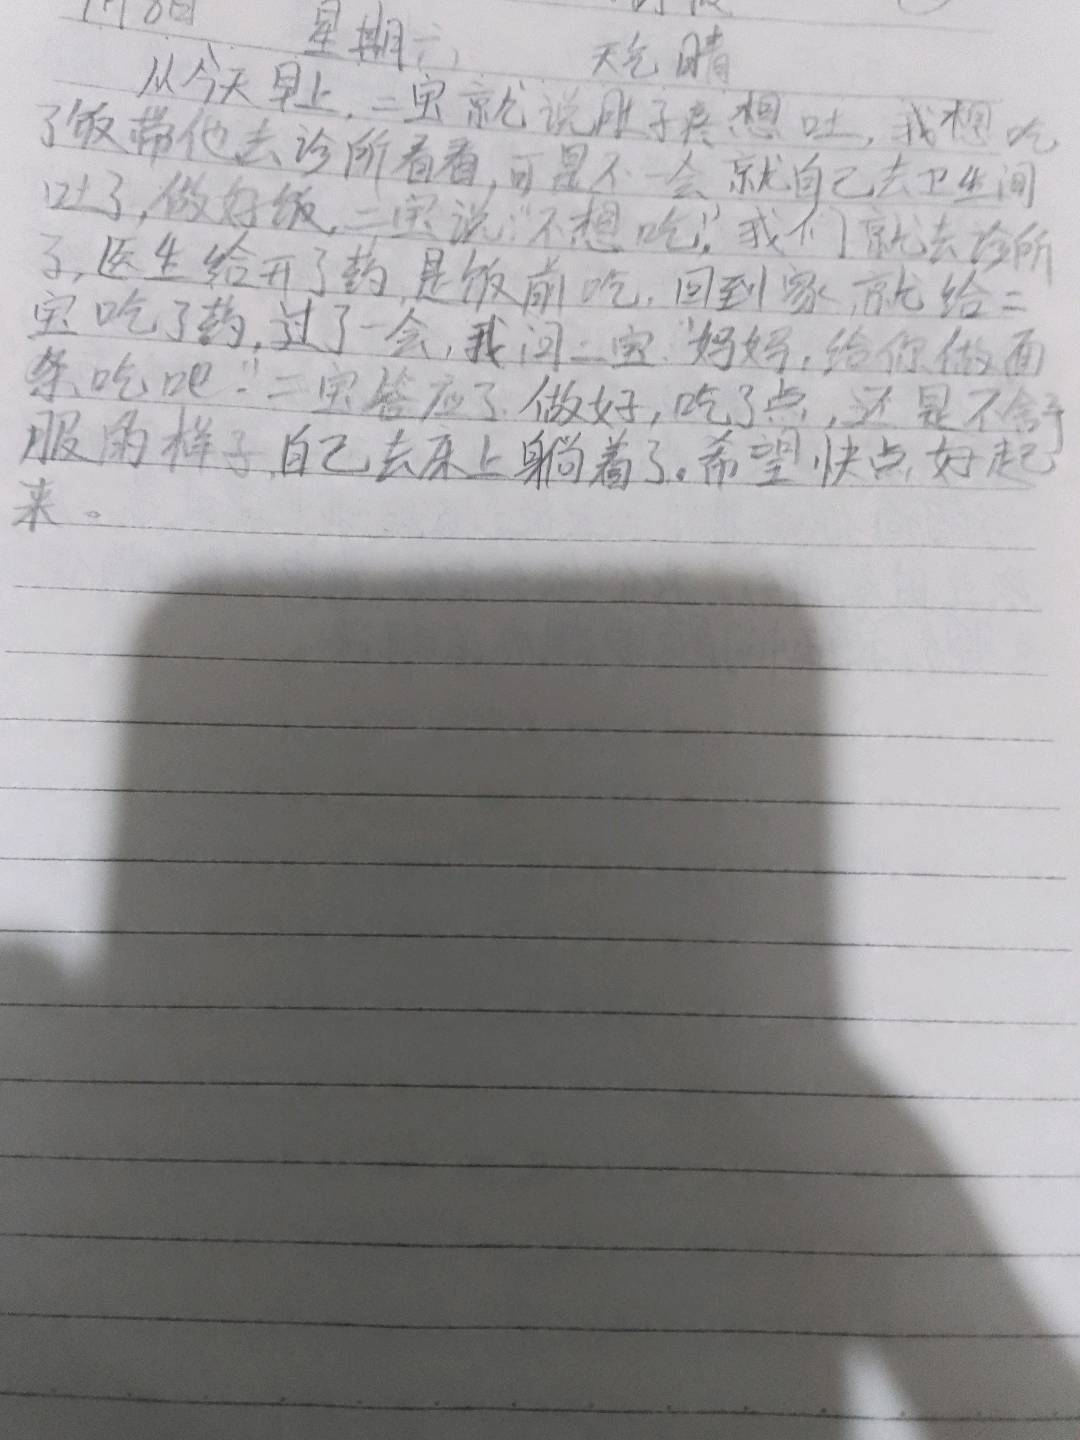 星期六 天气晴
从今天早上,二宝就说肚子疼想吐,我想吃
了饭带他去诊所看看,可是不一会就自己去卫生间
吐了,做好饭,二宝说:“不想吃”,我们就去诊所
了,医生给开了药,是饭前吃,回到家就给二
宝吃了药,过了一会,我问二宝:“妈妈,给你做面
条吃吧!”二宝答应了,做好,吃了点,还是不舒
服的样子,自己去床上躺着了。希望快点好起
来。